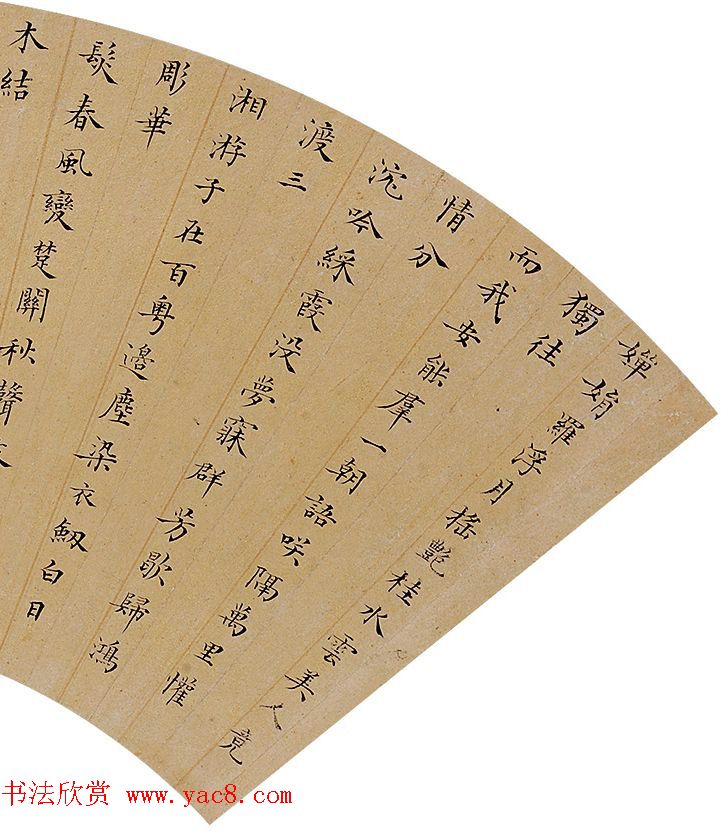 嬋娟羅浮月搖艷桂水雲美人竟
獨往
而我安能羣一朝語咲隔萬里懽
情分
沉吟綵霞没夢寐群芳歇歸鴻
渡三
湘游子在百粤邊塵染衣劒白日
彫華
髮春風變楚關秋聲
木結
书法欣赏 www.yac8.com